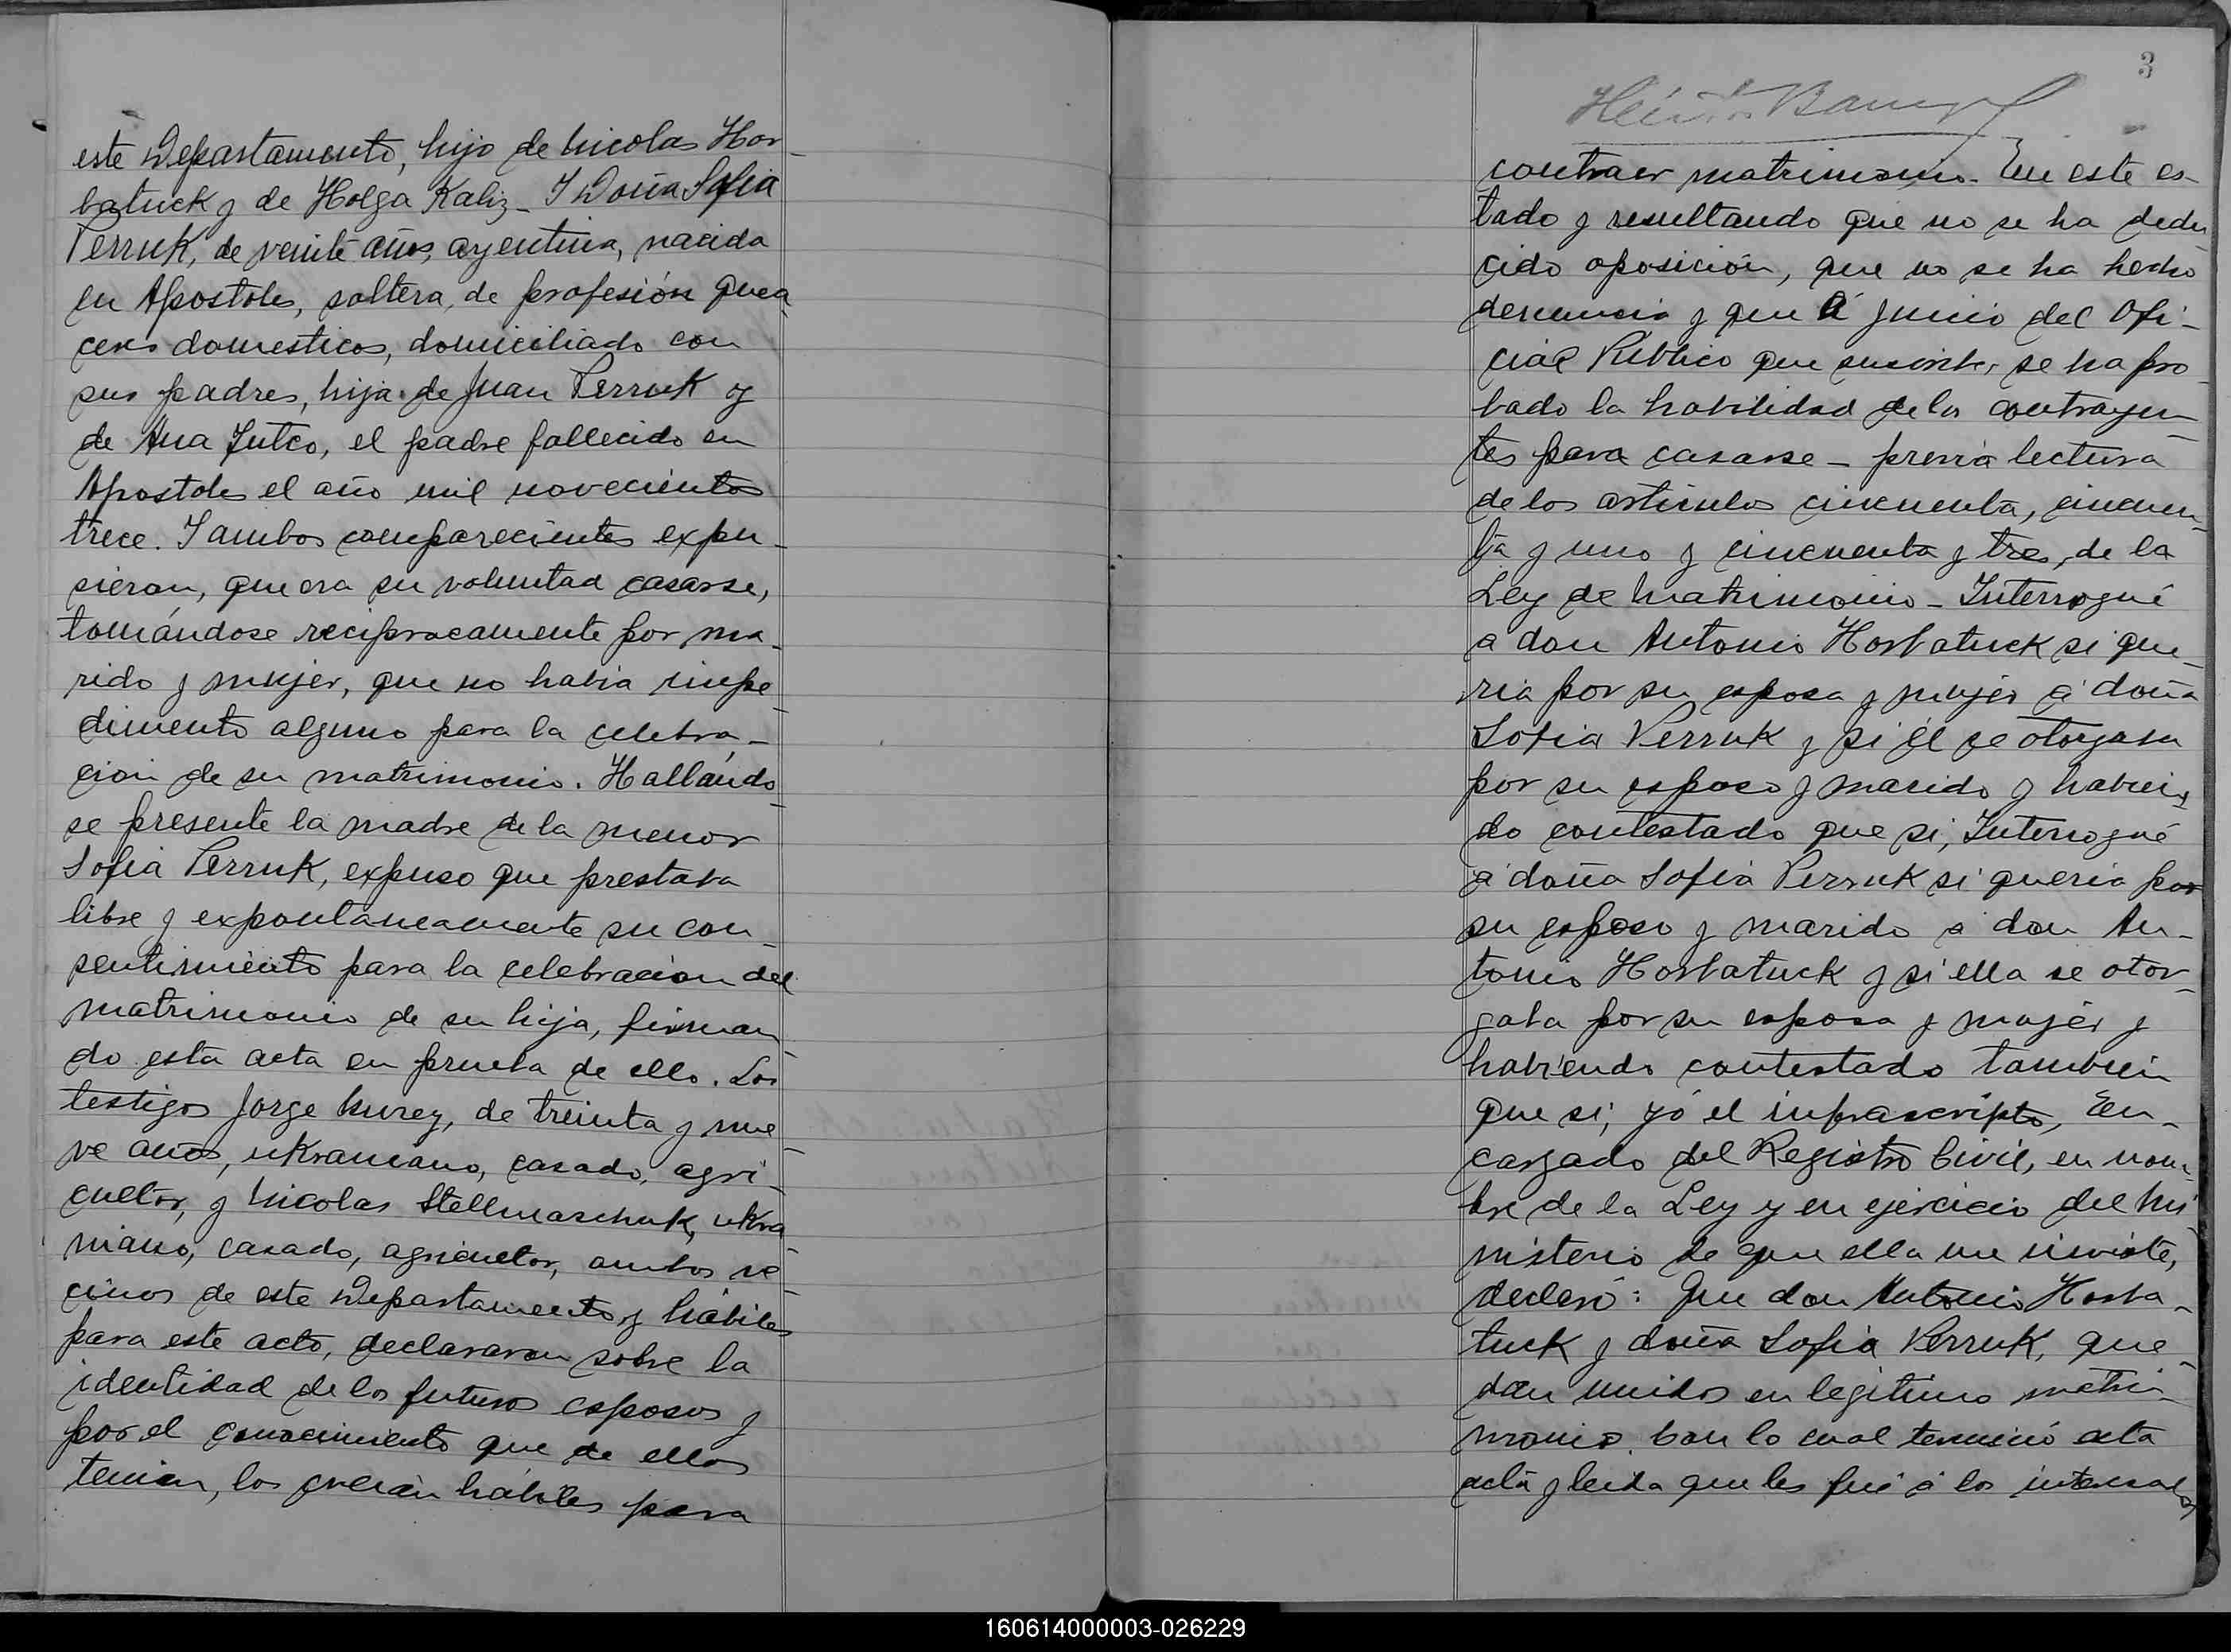 este Departamento, hijo de Nicolas Hor-
batuck y de Holga Kaliz_ I Doña Sofia
Perruk, de veinte años, argentina, nacida
en Apostoles, soltera, de profesión quea
ceres domesticos, domiciliado con
sus padres, hija de Juan Perruk y
de Ana Jutco, el padre fallecido en
Apostoles el año mil novecientos
trece. I ambos comparecientes expu-
sieron, que era su voluntad casarse,
tomándose reciprocamente por ma-
rido y mujer, que no habia impe-
dimento alguno para la celebra-
cion de su matrimonio. Hallándo-
se presente la madre de la menor
Sofia Perruk, expuso que prestaba
libre y expontaneamente su con-
sentimiento para la celebracion del
matrimonio de su hija, firman-
do esta acta en prueba de ello. Los
testigos Jorge Kurey, de treinta y nue-
ve años, ukraniano, casado, agri-
cultor, y Nicolas Stellmaschuk, ukra-
niano, casado, agricultor, ambos ve-
cinos de este Departamento y hábiles
para este acto, declararon sobre la
identidad de los futuros esposos y
por el conocimiento que de ellos
tenian, los creian hábiles para
3
contraer matrimonio. En este es-
tado y resultando que no se ha dedu
cido oposición, que no se ha hecho
denuncia y que á juicio del Ofi-
cial Público que suscribe, se ha pro
bado la habilidad de los contrayen-
tes para casarse - previa lectura
de los artículos cincuenta, cincuen-
ta y uno y cincuenta y tres, de la
Ley de Matrimonio - Interrogué
a don Antonio Horbatuck si que-
ria por su esposa y mujer á doña
Sofia Perruk y si él se otorgaba
por su esposo y marido y habien
do contestado que si, Interrogué
á doña Sofia Perruk si queria por
su esposo y marido á don An-
tonio Horbatuck y si ella se otor-
gaba por su esposa y mujer y
habiendo contestado tambien
que si, yó el infrascripto, En-
cargado del Registro Civil, en nom-
bre de la Ley y en ejercicio del Mi-
nisterio de que ella me inviste,
declaró: Que don Antonio Horba-
tuck y doña Sofia Perruk, que-
dan unidos en legitimo matri-
monio. Con lo cual terminó esta
acta y leida que les fué á los interesados
160614000003-026229